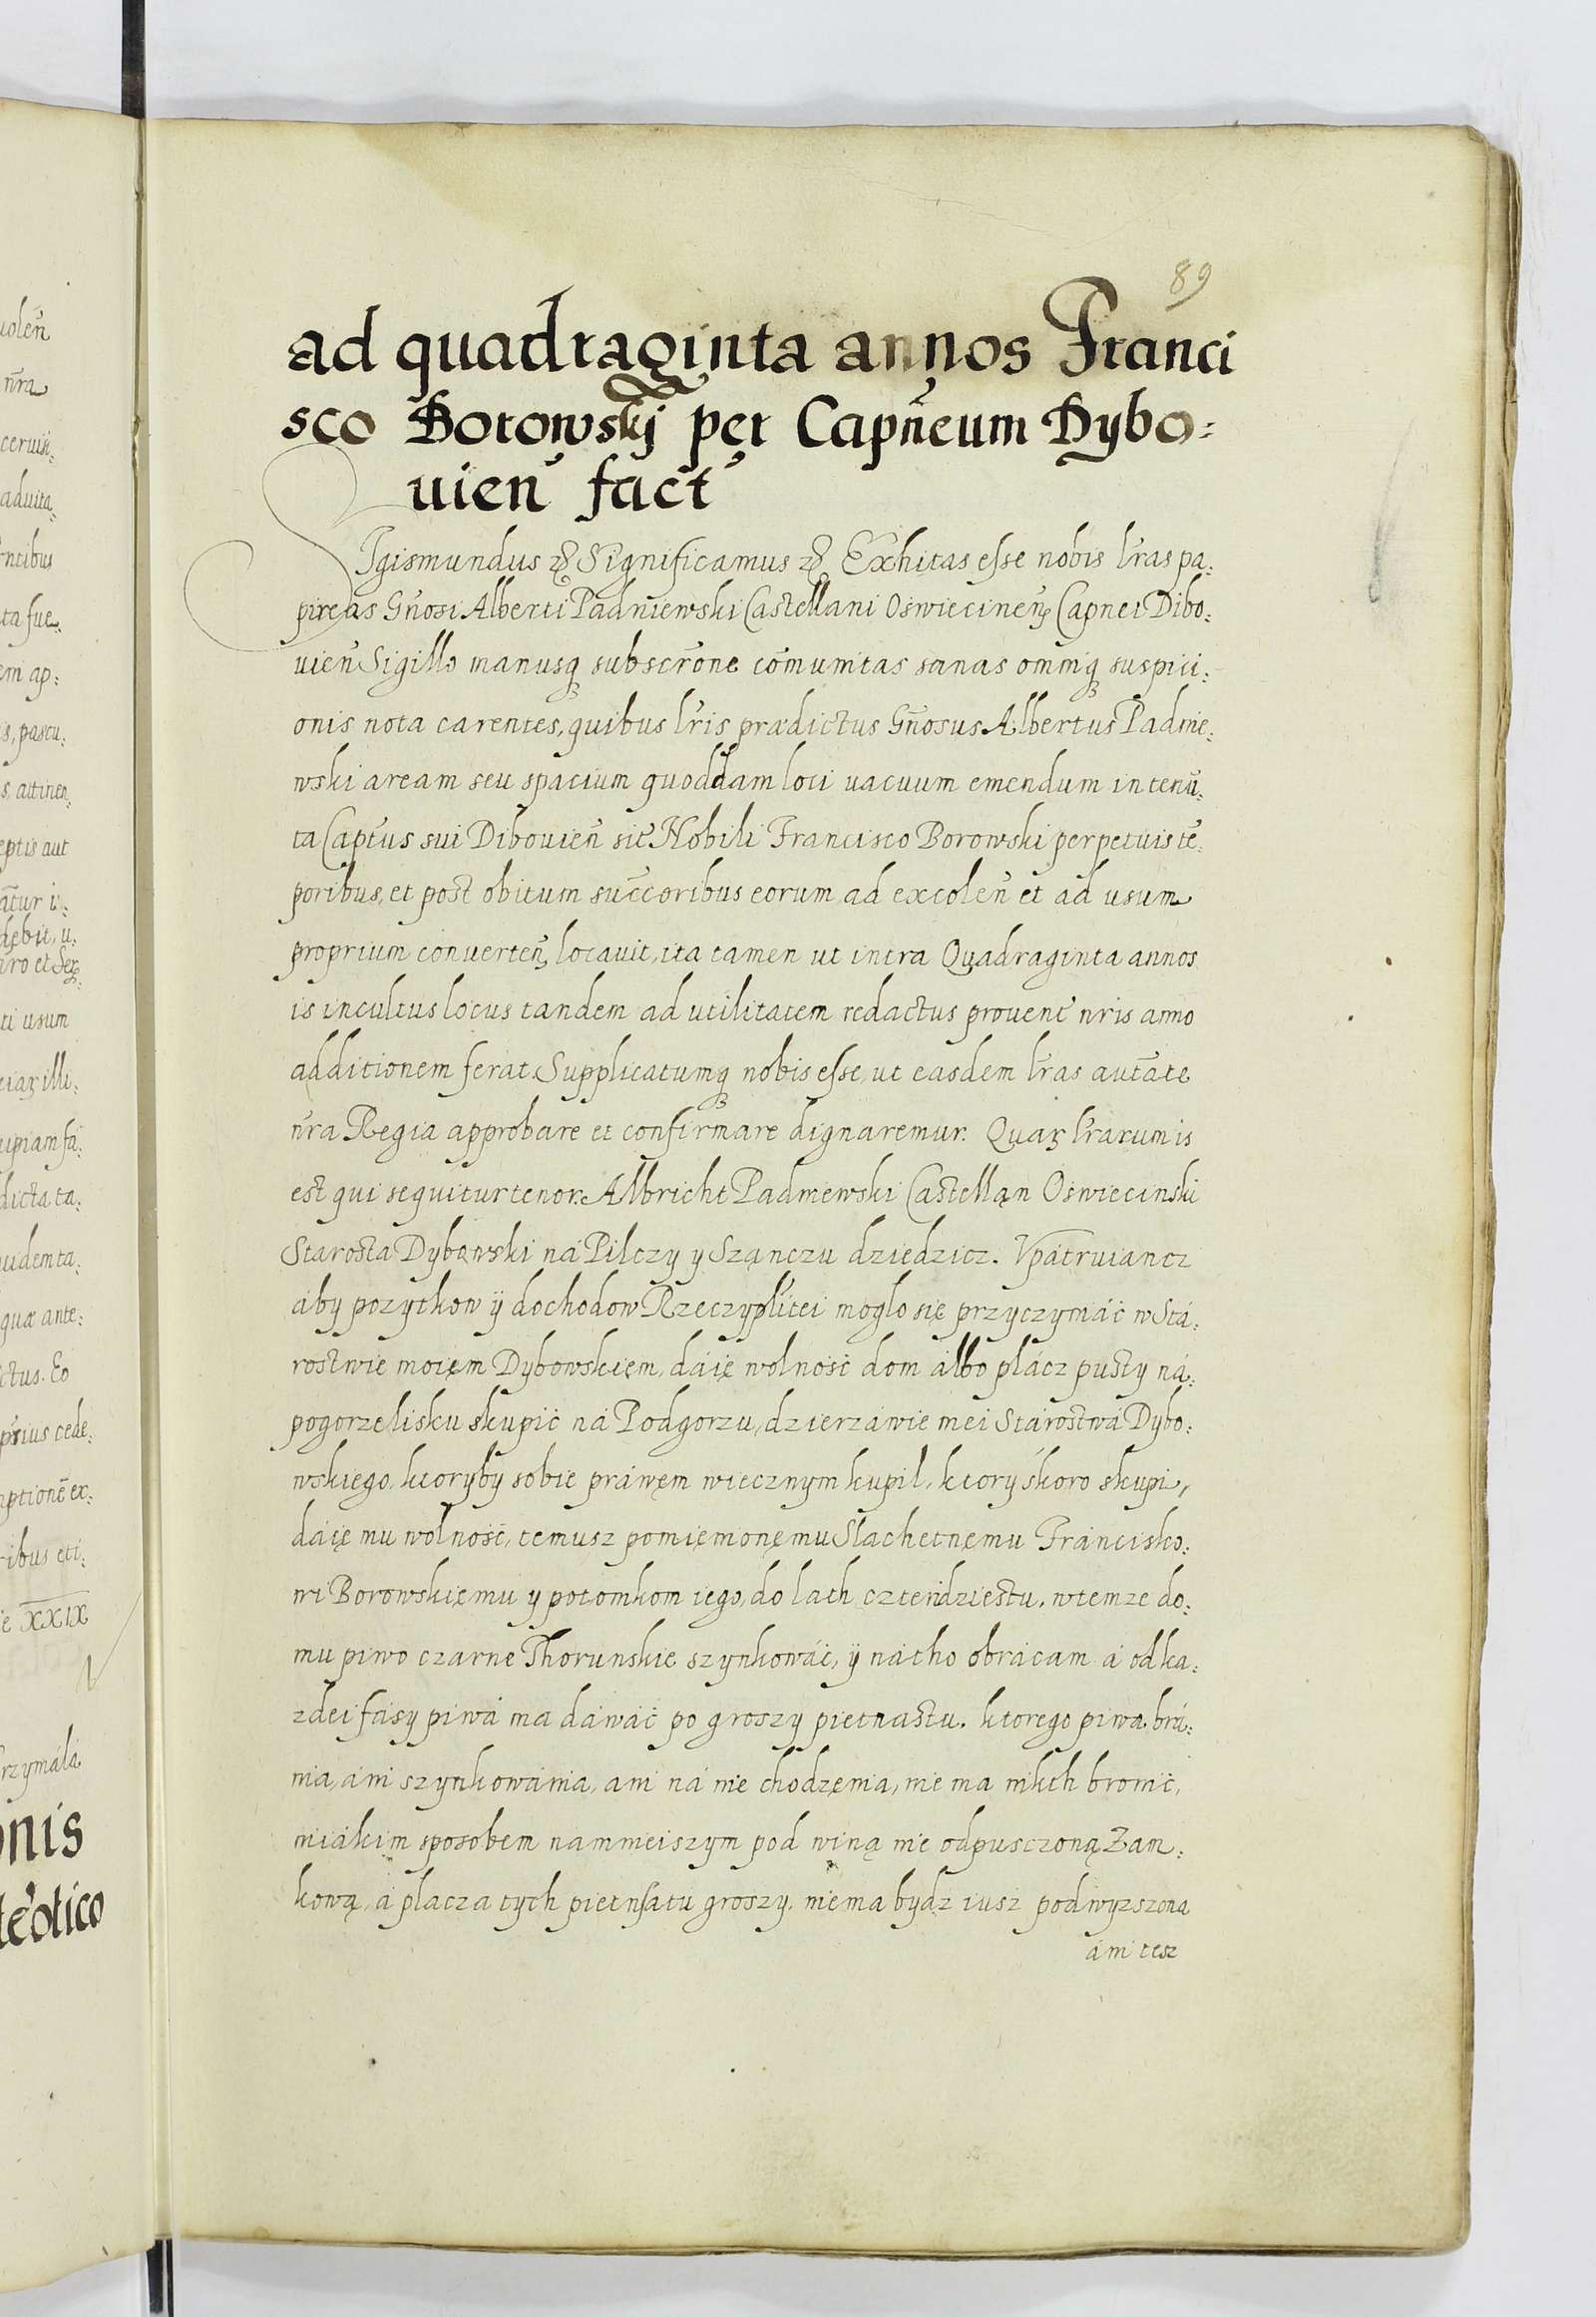 89
ad quadraginta annos Franci
sco Borowskj per Capñeum Dybo:
uien̄ fact
Sigismundus &c Significamus &c Exhitas esse nobis lr̄as pa:
pireas Gñosi Alberti Padniewski Castellani Oswiecinen̄ Capnei Dibo:
uien̄ Sigillo manusq subscr̄one com̄unitas sanas omniq suspici:
onis nota carentes, quibus lr̄is prædictus Gñosus Albertus Padnie:
wski aream seu spacium quoddam loci vacuum emendum in tenū:
ta Captus sui Dibouien̄ sit Nobili Francisco Borowski perpetuis tē:
poribus, et post obitum succ̄oribus eorum ad excolen̄ et ad usum
proprium conuerten̄, locauit, ita tamen ut intra Quadraginta annos
is incultus locus tandem ad utilitatem redactus prouent nris anno
additionem ferat. Supplicatumq nobis esse, ut easdem lr̄as autāte
nr̄a Regia approbare et confirmare dignaremur. Quaꝝ lr̄arum is
est qui sequitur tenor. Albricht Padniewski Castelląn Oswiecinski
Starosta Dybowski ná Pilczy y Szączu dziedzicz. Vpátruiancz
áby pozytkow ÿ dochodow Rzeczyplitei moglo się przyczyniáć w Stá:
rostwie moięm Dybowskięm, dáię wolność dom álbo plácz pusty ná:
pogorzelisku skupić ná Podgorzu, dzierzáwie mei Stárostwá Dybo:
wskiego, ktoryby sobie práwęm wiecznym kupil, ktory skoro skupi,
dáię mu wolność, temusz pomięnionęmu Slachetnęmu Fráncisko:
wi Borowskięmu y potomkom iego, do lath czterdziestu, w temze do:
mu piwo czarne Thorunskie szynkowáć, ÿ nátho obrácam á od ka:
zdei fásy piwá ma dáwáć po groszy pietnastu. ktorego piwa brá:
nia, áni szynkowánia, ani ná nie chodzęnia, nie ma nikth bronić,
niákim sposobem namnieiszym pod winą nie odpusczoną Zam:
kową, á placza tych pietnsatu groszy, niema bydz iusz podwyzszona
áni tesz